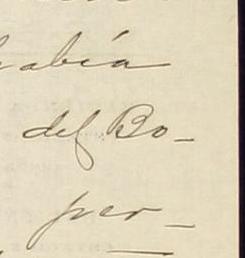 había
del Bo-
per-